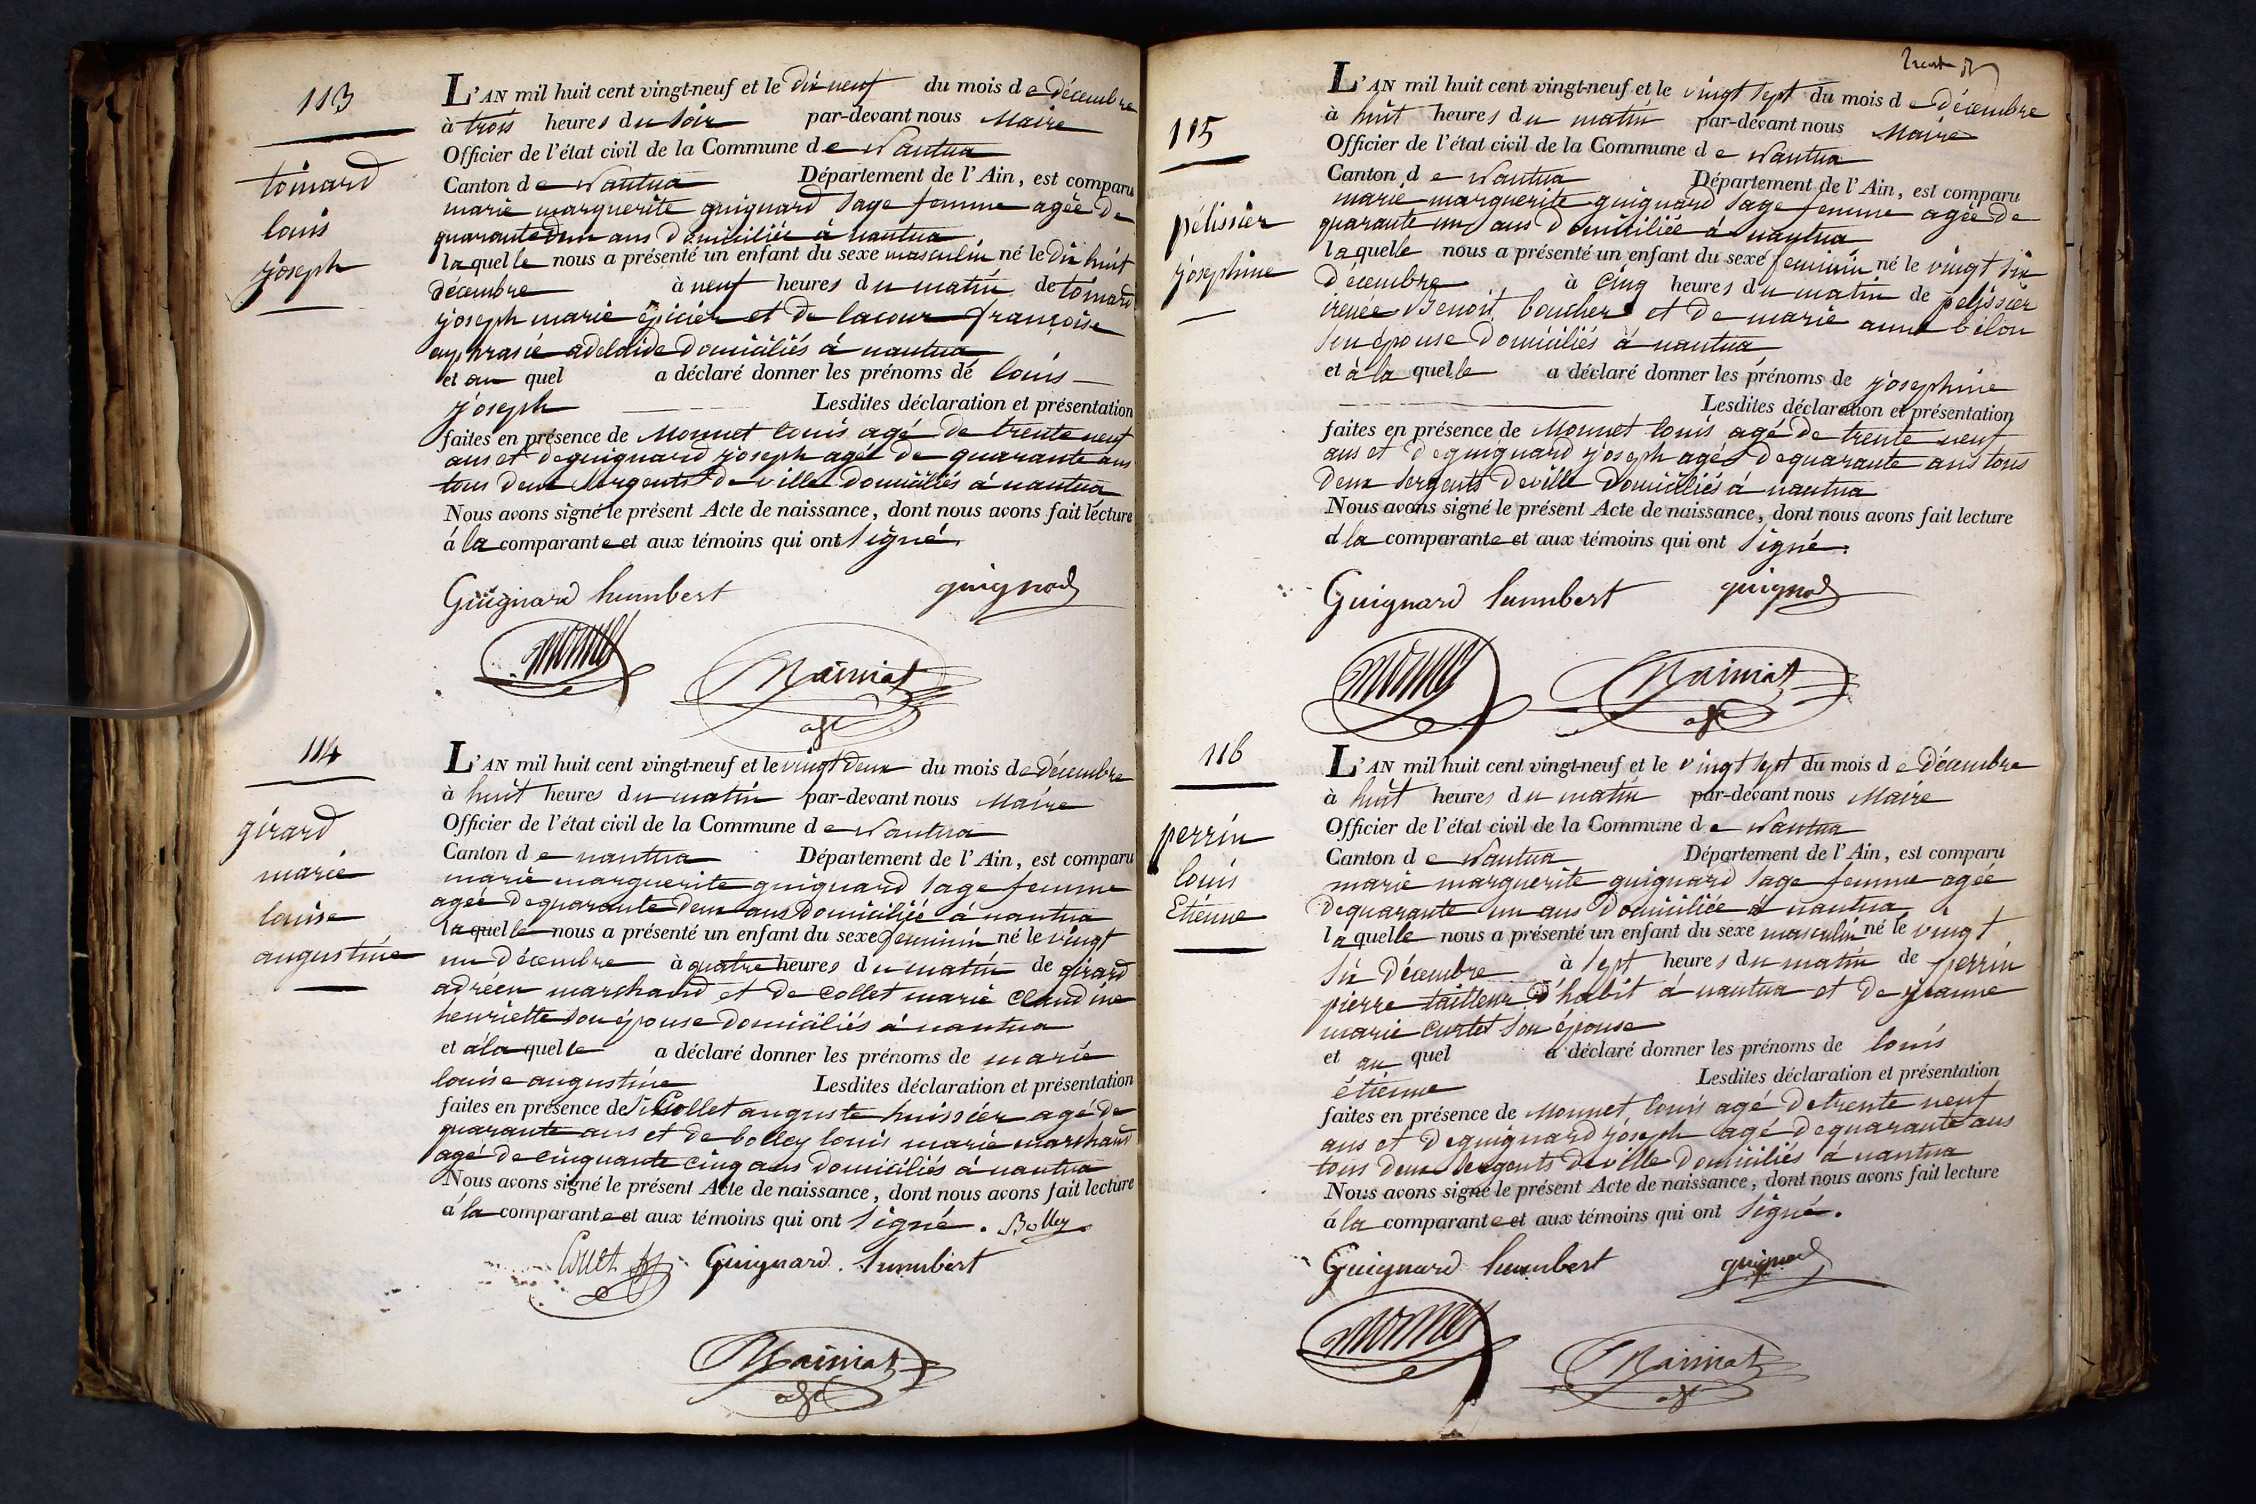 113
toinard
louis
joseph
L'AN mil huit cent vingt-neuf et le dix neuf du mois de décembre
à trois heures du soir par-devant nous Maire
Officier de l'état civil de la Commune de Nantua
Canton de Nantua Département de l'Ain, est comparu
marie marguerite guignard sage femme agée de
quarante deux ans domiciliée à nantua
laquelle nous a présenté un enfant du sexe masculin né le dix huit
décembre à neuf heures du matin de toinard
joseph marie épicier et de lacour françoise
euphrasie adelaide domiciliés à nantua
et au quel a déclaré donner les prénoms de louis
joseph Lesdites déclaration et présentation
faites en présence de Monnet louis agé de trente neuf
ans et de guignard joseph agé de quarante ans
tous deux sergents de ville domiciliés à nantua
Nous avons signé le présent Acte de naissance, dont nous avons fait lecture
à la comparante et aux témoins qui ont signé.
Guignard humbert guignard
monnet
114
girard
marie
louise
augustine
L'AN mil huit cent vingt-neuf et le vingt deux du mois de décembre
à huit heures du matin par-devant nous Maire
Officier de l'état civil de la Commune de Nantua
Canton de nantua Département de l'Ain, est comparu
marie marguerite guignard sage femme
agée de quarante deux ans domiciliée à nantua
laquelle nous a présenté un enfant du sexe feminin né le vingt
un décembre à quatre heures du matin de girard
adréen marchand et de collet marie claudine
henriette son épouse domiciliés à nantua
et à la quelle a déclaré donner les prénoms de marie
louise augustine Lesdites déclaration et présentation
faites en présence de Collet auguste huissier agé de
quarante ans et de bolley louis marie marchand
agé de cinquante cinq ans domiciliés à nantua
Nous avons signé le présent Acte de naissance, dont nous avons fait lecture
à la comparante et aux témoins qui ont signé. Bolley
Collet Guignard humbert
115
pélissier
josephine
L'AN mil huit cent vingt-neuf et le vingt sept du mois de décembre
à huit heures du matin par-devant nous Maire
Officier de l'état civil de la Commune de Nantua
Canton de Nantua Département de l'Ain, est comparu
marie marguerite guignard sage femme agée de
quarante un ans domiciliée à nantua
laquelle nous a présenté un enfant du sexe feminin né le vingt six
décembre à cinq heures du matin de pelissier
irenée Benoit boucher et de marie anne bélon
son épouse domiciliés à nantua
et à la quelle a déclaré donner les prénoms de josephine
Lesdites déclaration et présentation
faites en présence de Monnet louis agé de trente neuf
ans et de guignard joseph agé de quarante ans tous
deux sergents de ville domiciliés à nantua
Nous avons signé le présent Acte de naissance, dont nous avons fait lecture
à la comparante et aux témoins qui ont signé.
Guignard humbert guignard
monnet
116
perrin
louis
Etienne
L'AN mil huit cent vingt-neuf et le vingt sept du mois de décembre
à huit heures du matin par-devant nous Maire
Officier de l'état civil de la Commune de Nantua
Canton de Nantua Département de l'Ain, est comparu
marie marguerite guignard sage femme agée
de quarante un ans domiciliée à nantua
laquelle nous a présenté un enfant du sexe masculin né le vingt
six décembre à sept heures du matin de perrin
pierre tailleur d'habit à nantua et de jeanne
marie curtet son épouse
et au quel a déclaré donner les prénoms de louis
étienne Lesdites déclaration et présentation
faites en présence de Monnet louis agé de trente neuf
ans et de guignard joseph agé de quarante ans
tous deux sergents de ville domiciliés à nantua
Nous avons signé le présent Acte de naissance, dont nous avons fait lecture
à la comparante et aux témoins qui ont signé.
Guignard humbert guignard
monnet